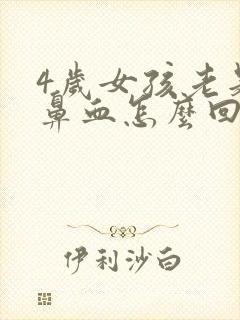 4歲女孩老是
鼻血怎麼回
伊利沙白